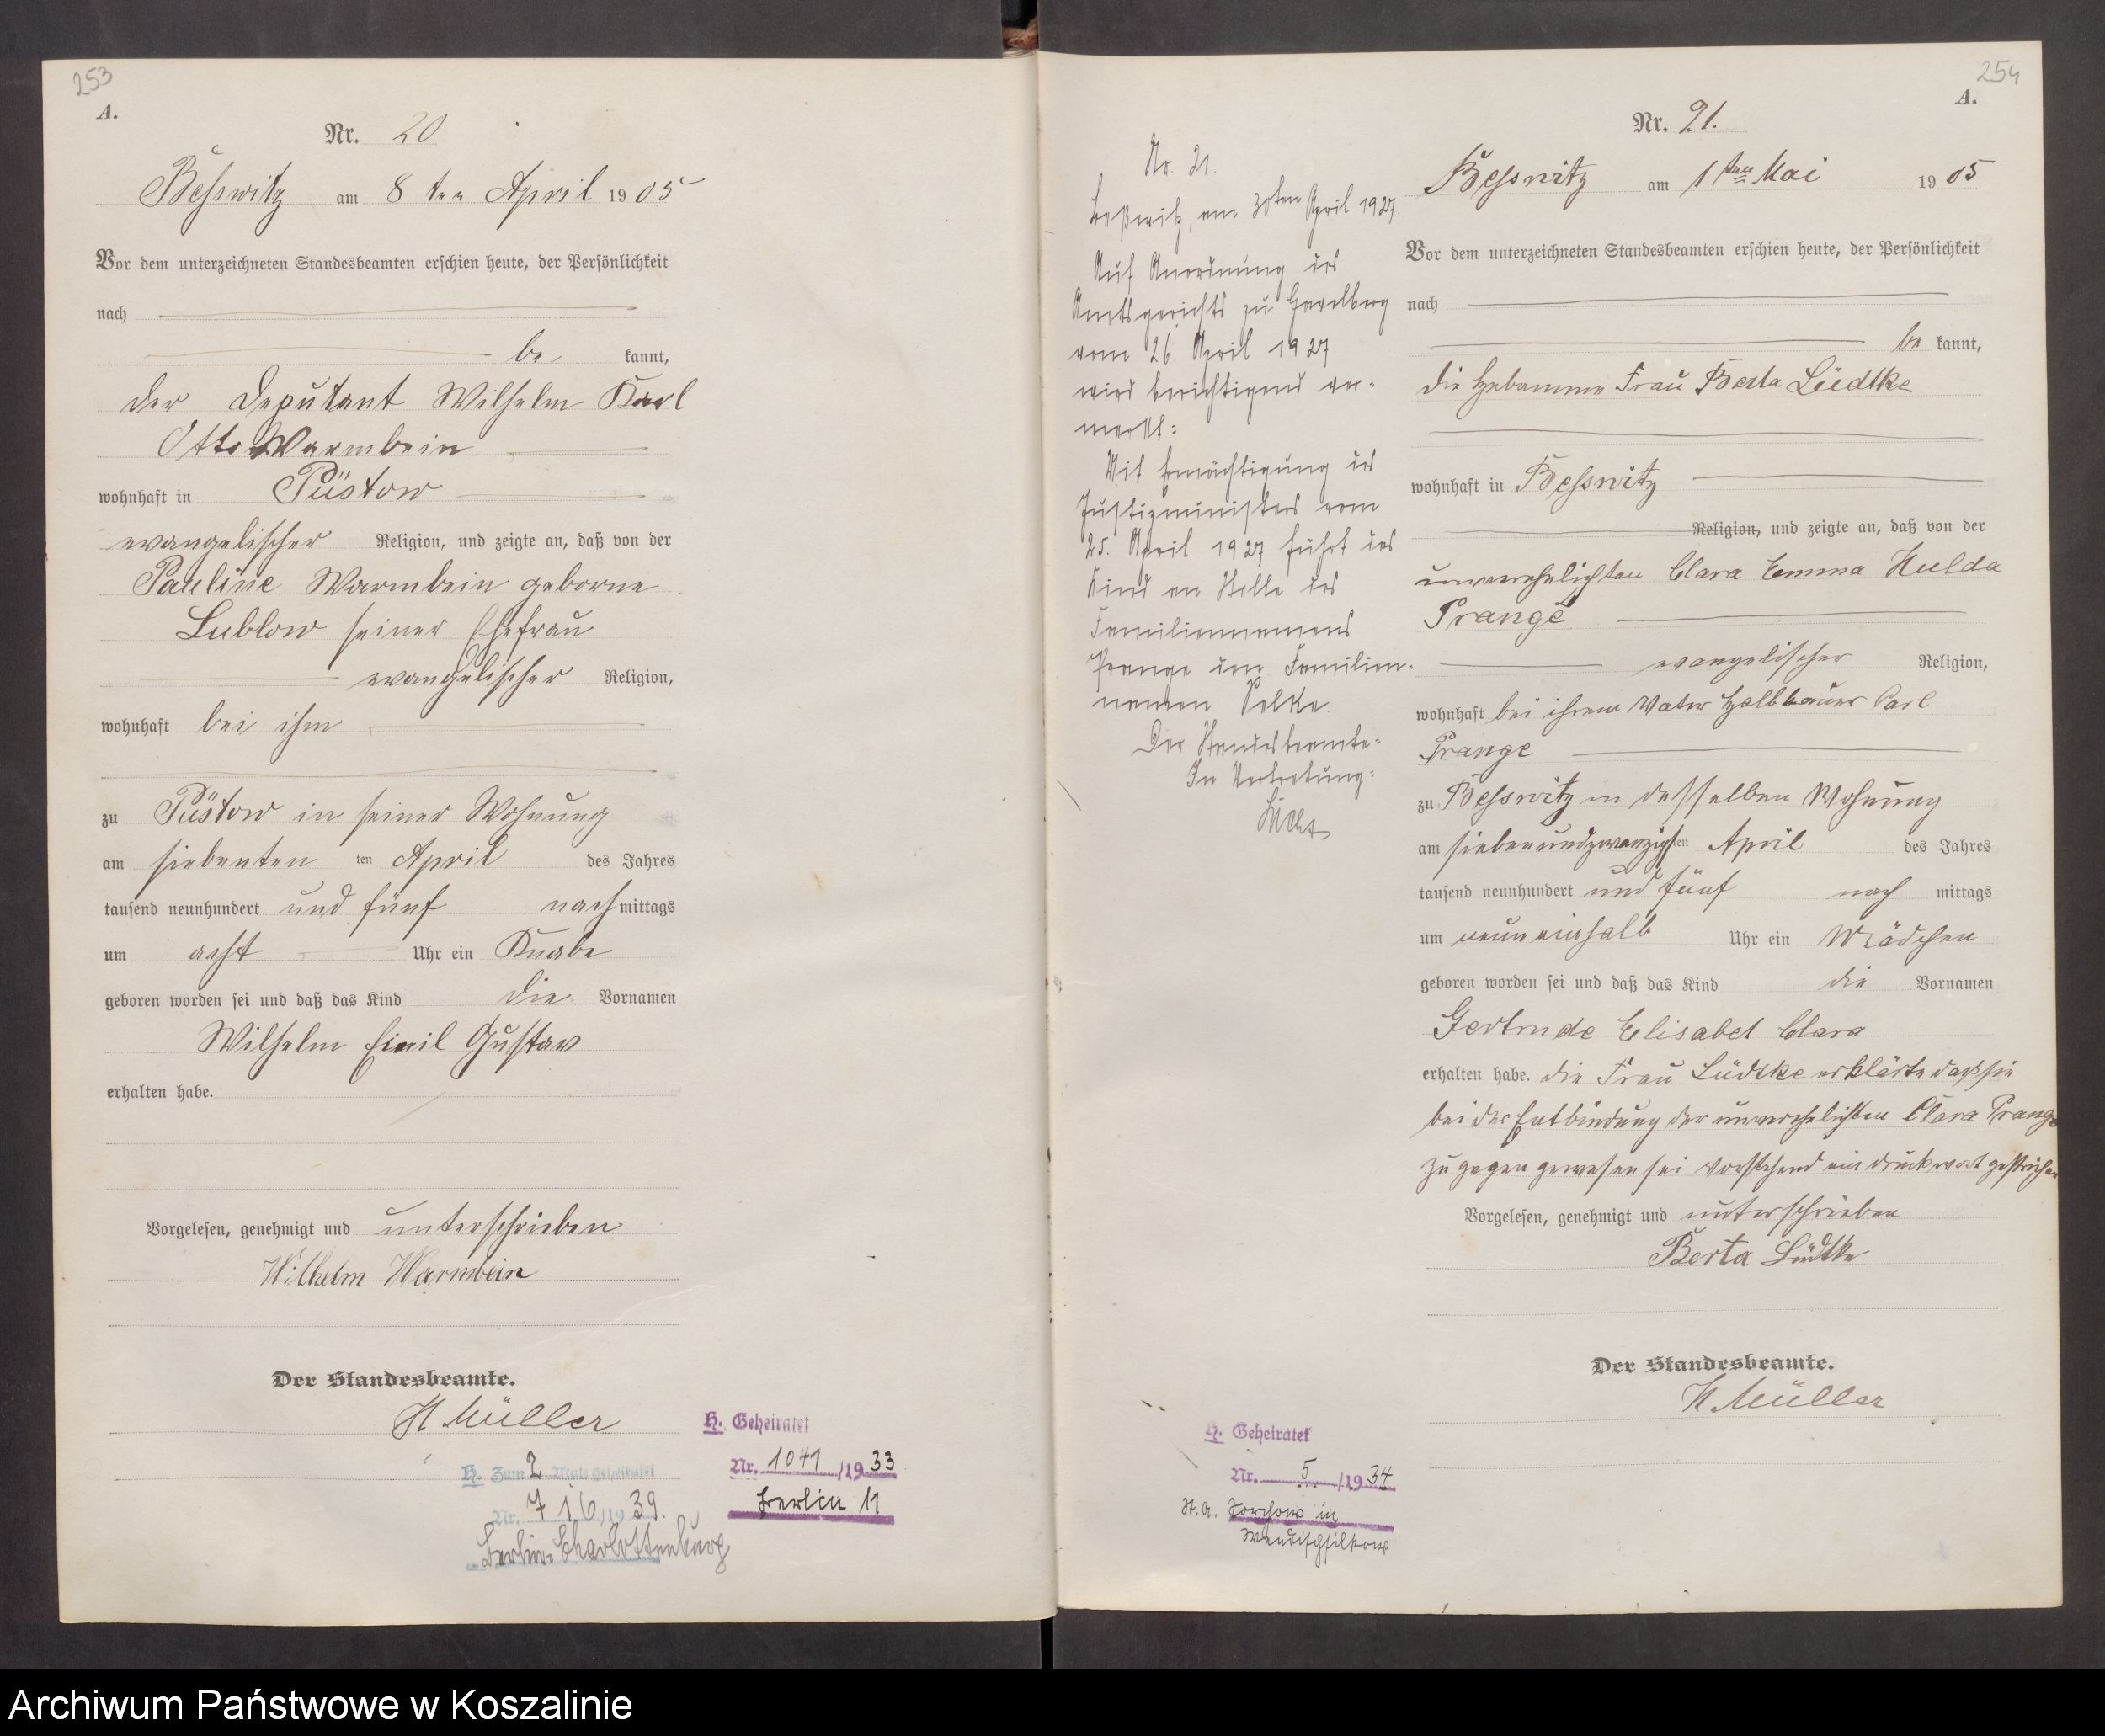 253
A.
Nr. 20
Beßwitz am 8 ten April 1905
Vor dem unterzeichneten Standesbeamten erschien heute, der Persönlichkeit
nach
be kannt,
der Deputant Wilhelm Karl
Otto Warmbein
wohnhaft in Püstow
evangelischer Religion, und zeigte an, daß von der
Pauline Warmbein geborne
Lublow seiner Ehefrau
evangelischer Religion,
wohnhaft bei ihm
zu Püstow in seiner Wohnung
am siebenten ten April des Jahres
tausend neunhundert und fünf nachmittags
um acht Uhr ein Knabe
geboren worden sei und daß das Kind die Vornamen
Wilhelm Emil Gustav
erhalten habe.
Vorgelesen, genehmigt und unterschrieben
Wilhelm Warmbein
Der Standesbeamte.
H Müller
H. Geheiratet
Nr. 1041/1933
Berlin 11
H. Zum 2 Male geheiratet
Nr. 716/1939.
Berlin-Charlottenburg
No. 21.
Beßwitz, am 30ten April 1927.
Auf Anordnung des
Amtsgerichts zu
vom 26. April 1927
wird berichtigend ver-
merkt:
Mit Ermächtigung des
Justizministers vom
25. April 1927 führt das
Kind an Stelle des
Familiennamens
Prange den Familien-
namen Selke.
Der Standesbeamte:
In Vertretung:
H. Geheiratet
Nr. 5/1934
St. A. in
254
A.
Nr. 21.
Beßwitz am 1ten Mai 1905
Vor dem unterzeichneten Standesbeamten erschien heute, der Persönlichkeit
nach
be kannt,
die Hebamme Frau Berta Lüedtke
wohnhaft in Beßwitz
Religion, und zeigte an, daß von der
unverehelichten Clara Emma Hulda
Prange
evangelischer Religion,
wohnhaft bei ihrem Vater Halbbauer Carl
Prange
zu Beßwitz in desselben Wohnung
am siebenundzwanzigsten April des Jahres
tausend neunhundert und fünf nach mittags
um neun einhalb Uhr ein Mädchen
geboren worden sei und daß das Kind die Vornamen
Gertrude Elisabet Clara
erhalten habe. die Frau Lüdtke erklärte daß sie
bei der Entbindung der unverehelichten Clara Prange
zugegen gewesen sei vorstehend ein druckwort gestrichen
Vorgelesen, genehmigt und unterschrieben
Berta Lüdtke
Der Standesbeamte.
H. Müller
Archiwum Państwowe w Koszalinie